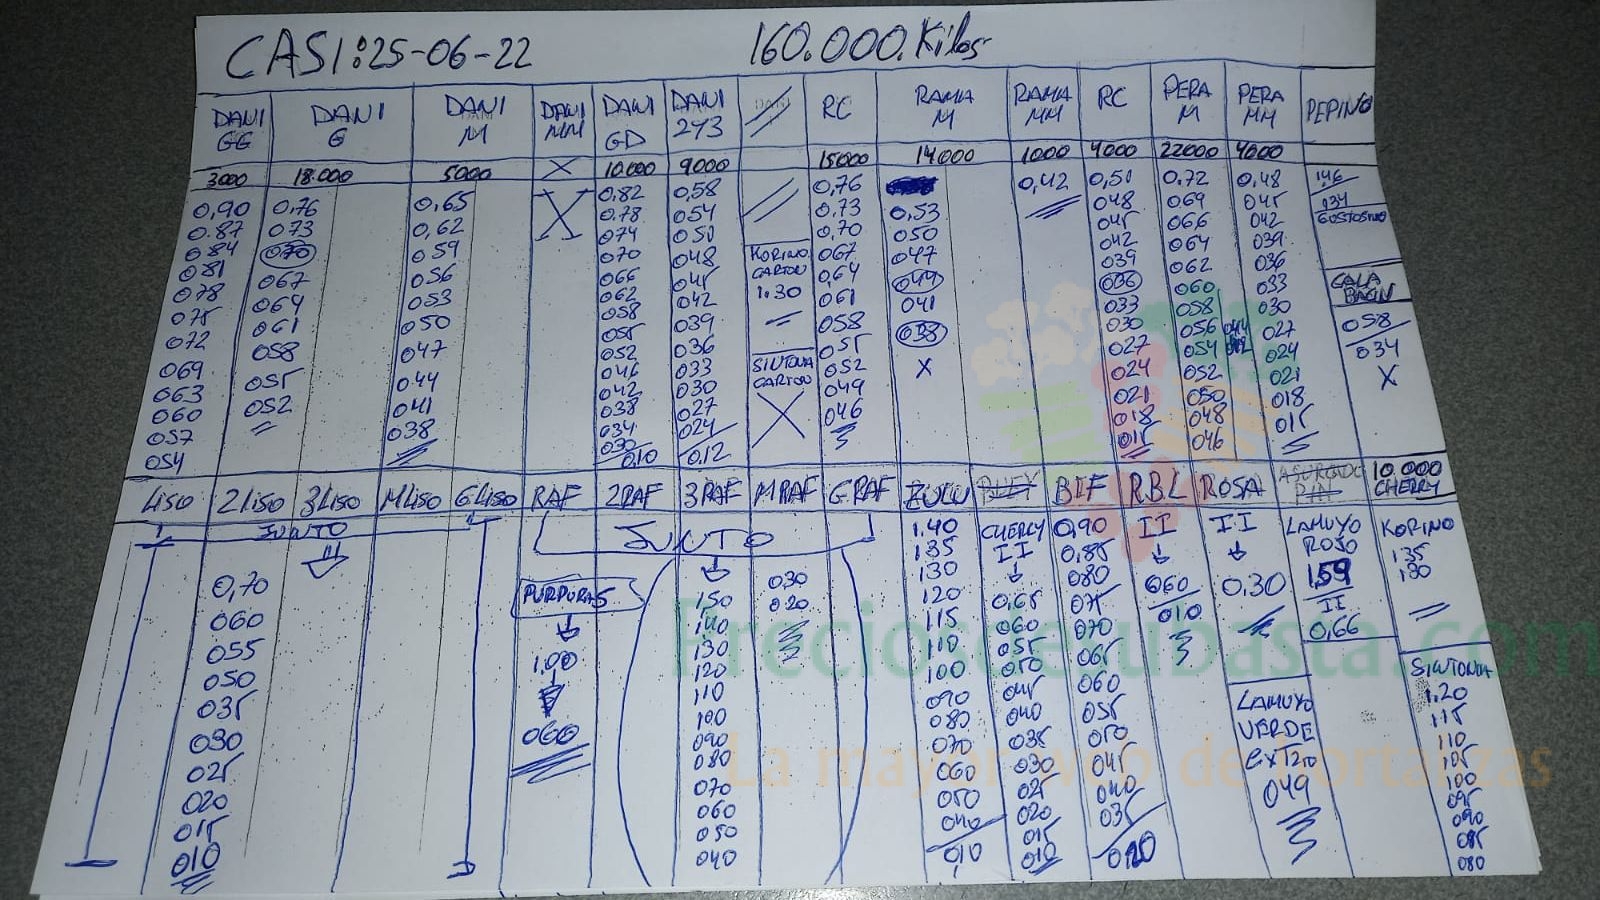 CASI: 25-06-22 160.000.Kilos
DANI GG DANI G DANI M DANI MM DANI GD DANI 2Y3 RC RAMA M RAMA MM RC PERA M PERA MM PEPINO
3000 18.000 5000 X 10.000 9000 15000 14000 1000 4000 22000 4000
0,90 0,76 0,65 X 0,82 0,58 0,76 0,42 0,51 0,72 0,48 146
0.87 073 0,62 0.78 054 0,73 0,53 048 069 045 034
084 070 059 074 050 0,70 050 045 066 042 GOSTOSINO
081 067 056 070 048 KORINO 067 047 042 064 039
078 064 053 066 045 CARTON 0,64 044 039 062 036 CALA
075 061 050 062 042 1.30 061 041 036 060 033 BACIN
072 058 047 058 039 058 038 033 058 030 058
069 055 044 055 036 SINTONIA 055 X 030 056 027 034
063 052 041 052 033 CARTON 052 027 054 024 X
060 038 046 030 X 049 024 052 021
057 042 027 046 021 050 018
054 038 024 018 048 015
034 0,12 015 046
030
0,10
1LISO 2LISO 3LISO MLISO GLISO RAF 2RAF 3RAF MRAF GRAF ZULU BIF RBL ROSA ASURCADO 10.000 CHERRY
JUNTO JUNTO 1.40 CHERRY 0,90 II II LAMUYO KORINO
135 II 0,85 ROJO 135
0,70 030 130 080 060 0,30 159 130
PURPURAS 150 020 120 0,65 075 010 II
060 140 115 060 070 0,66
055 130 110 055 065 SINTONIA
050 1,00 120 100 050 060 LAMUYO 1.20
035 110 090 045 055 VERDE 115
030 060 100 080 040 050 EXTRA 110
025 090 070 035 045 049 105
020 080 060 030 040 100
015 070 050 025 035 095
010 060 040 020 020 090
050 010 015 085
040 010 080
Preciosdesubasta.com
La mayor web de hortalizas